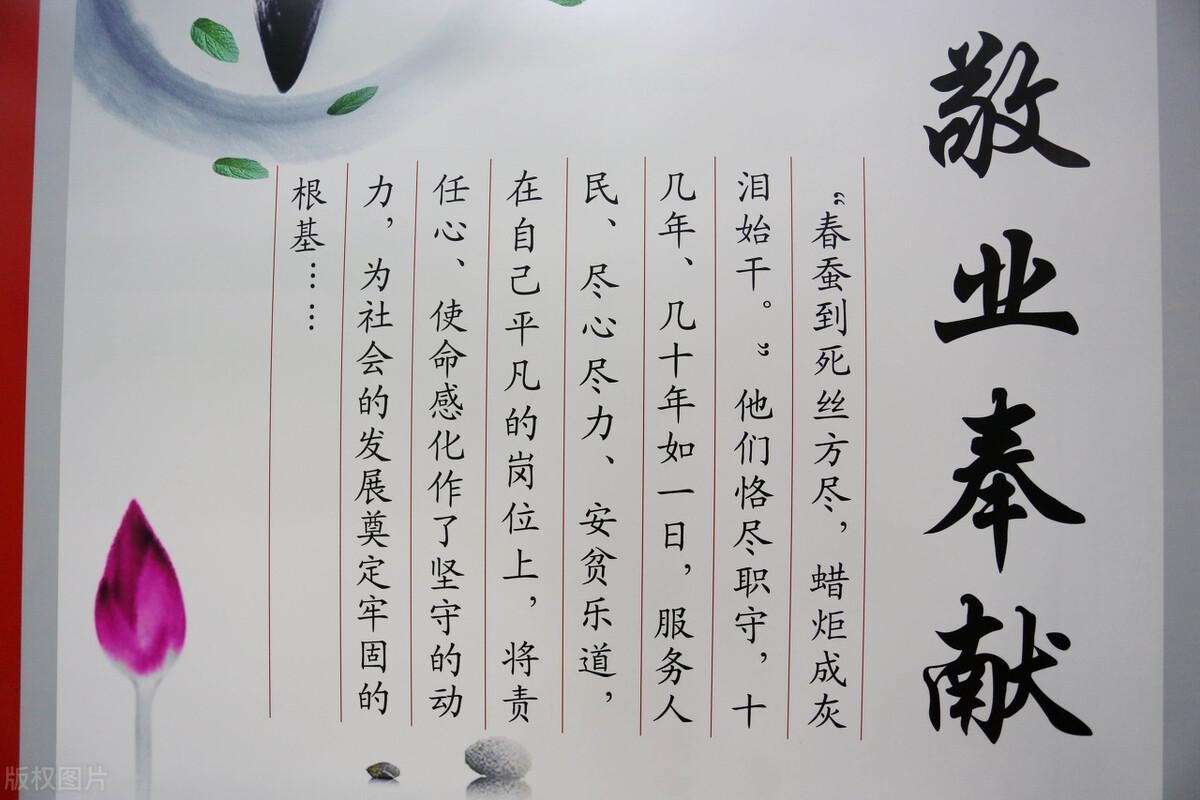 敬业奉献
“春蚕到死丝方尽，蜡炬成灰
泪始干。”他们恪尽职守，十
几年、几十年如一日，服务人
民、尽心尽力、安贫乐道，
在自己平凡的岗位上，将责
任心、使命感化作了坚守的动
力，为社会的发展奠定牢固的
根基……
版权图片